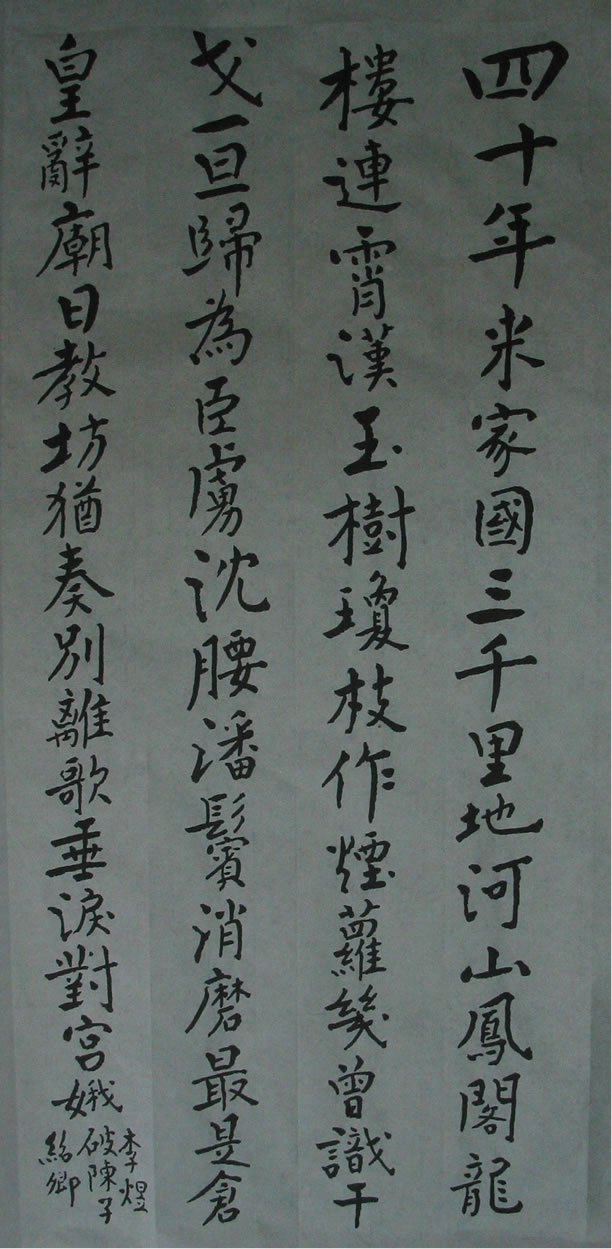 四十年来家國三千里地河山鳳閣龍
樓連霄漢玉樹瓊枝作煙蘿幾曾識干
戈一旦歸為臣虜沈腰潘鬢消磨最是倉
皇辭廟日教坊猶奏別離歌垂淚對宮娥
李煜
破陳子
紹卿